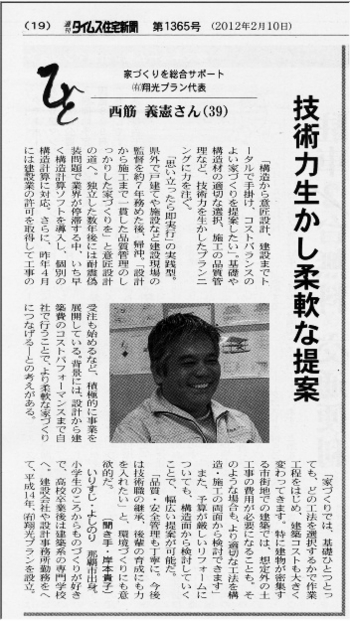 （19） 週刊 タイムス住宅新聞 第1365号 （2012年2月10日）
ひと
家づくりを総合サポート
㈲翔光プラン代表
西筋 義憲さん（39）
技術力生かし柔軟な提案
「構造から意匠設計、建設までト
ータルで手掛け、コストバランスの
よい家づくりを提案したい」。基礎や
構造材の適切な選択、施工の品質管
理など、技術力を生かしたプランニ
ングに力を注ぐ。
「思い立ったら即実行」の実践型。
県外で戸建てや施設など建設現場の
監督を約７年務めた後、帰沖。「設計
から施工まで一貫した品質管理のし
っかりした家づくりを」と意匠設計
の道へ。独立した数年後には耐震偽
装問題で業界が停滞する中、いち早
く構造計算ソフトを導入し、個別の
構造計算に対応。さらに、昨年４月
には建設業の許可を取得して工事の
受注も始めるなど、積極的に事業を
展開している。背景には、設計から建
築費のコストパフォーマンスまで自
社で行うことで、より柔軟な家づくり
につなげる―との考えがある。
「家づくりでは、基礎ひとつとっ
ても、どの工法を選択するかで作業
工程をはじめ、建築コストも大きく
変わってきます。特に建物が密集す
る市街地での建築では、想定外の土
工事の費用が必要になることも。そ
のような場合も、より適切な工法を構
造・施工の両面から検討できます」
また、予算が厳しいリフォームに
ついても、構造面から検討していく
ことで、幅広い提案が可能だ。
「品質・安全管理も丁寧に。今後
は技術職の継承、後輩の育成にも力
を入れたい」と、環境づくりにも意
欲的だ。 （聞き手・岸本貴子）
いりすじ・よしのり 那覇市出身。
小学生のころからものづくりが好き
で、高校卒業後は建築系の専門学校
へ。建設会社や設計事務所勤務をへ
て、平成14年、㈲翔光プランを設立。